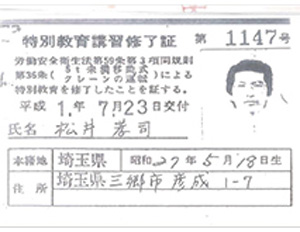 特別教育講習修了証 第1147号
労働安全衛生法第59条第3項同規則
第36条(5t未満移動式クレーンの運転)による
特別教育を修了したことを証する。
平成 1年 7月23日交付
氏名 松井 孝司
本籍地 埼玉県 昭和27年5月18日生
住所 埼玉県三郷市彦成1-7